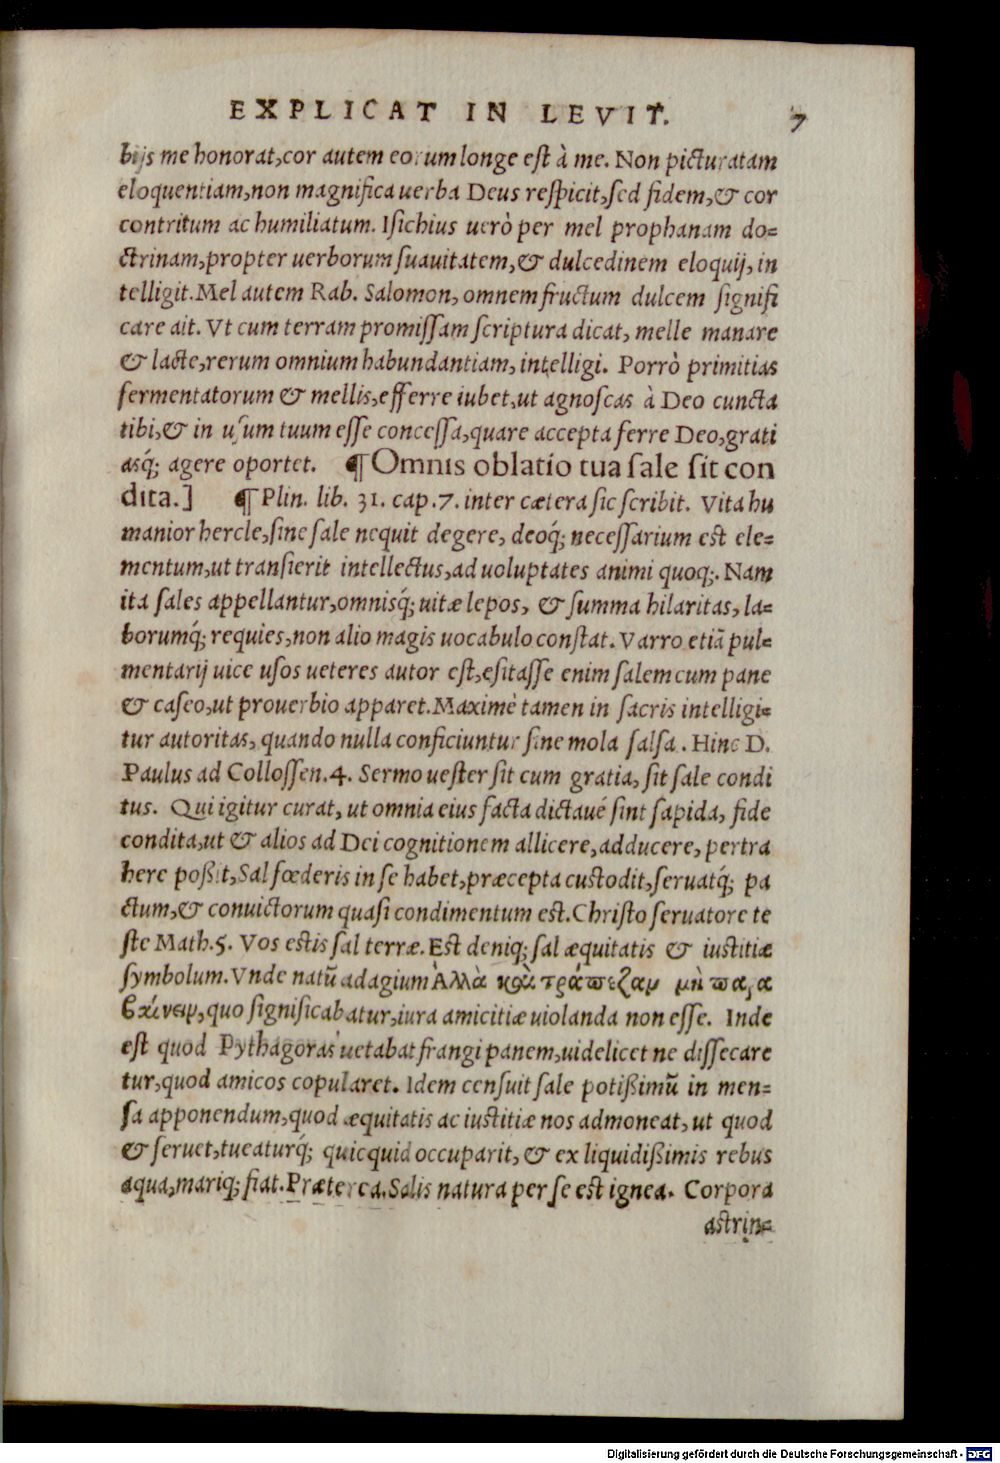 EXPLICAT IN LEVIT. 7
bijs me honorat, cor autem eorum longe est à me. Non picturatam
eloquentiam, non magnifica uerba Deus respicit, sed fidem, & cor
contritum ac humiliatum. Isichius uerò per mel prophanam do=
ctrinam, propter uerborum suauitatem, & dulcedinem eloquij, in
telligit. Mel autem Rab. Salomon, omnem fructum dulcem signifi
care ait. Vt cum terram promissam scriptura dicat, melle manare
& lacte, rerum omnium habundantiam, intelligi. Porrò primitias
fermentatorum & mellis, efferre iubet, ut agnoscas à Deo cuncta
tibi, & in usum tuum esse concessa, quare accepta ferre Deo, grati
asq́; agere oportet. ¶ Omnis oblatio tua sale sit con
dita.] ¶ Plin. lib. 31. cap. 7. inter cætera sic scribit. Vita hu
manior hercle, sine sale nequit degere, deoq́; necessarium est ele=
mentum, ut transierit intellectus, ad uoluptates animi quoq;. Nam
ita sales appellantur, omnisq́; uitæ lepos, & summa hilaritas, la=
borumq́; requies, non alio magis uocabulo constat. Varro etiã pul=
mentarij uice usos ueteres autor est, esitasse enim salem cum pane
& caseo, ut prouerbio apparet. Maximè tamen in sacris intelligi=
tur autoritas, quando nulla conficiuntur sine mola salsa. Hinc D.
Paulus ad Collossen. 4. Sermo uester sit cum gratia, sit sale condi
tus. Qui igitur curat, ut omnia eius facta dictaué sint sapida, fide
condita, ut & alios ad Dei cognitionem allicere, adducere, pertra
here poßit, Sal fœderis in se habet, præcepta custodit, seruatq́; pa
ctum, & conuictorum quasi condimentum est. Christo seruatore te
ste Math. 5. Vos estis sal terræ. Est deniq; sal æquitatis & iustitiæ
symbolum. Vnde natũ adagium Ἀλλὰ καὶ τράπεζαμ μὴ παρα
βαίνειν, quo significabatur, iura amicitiæ uiolanda non esse. Inde
est quod Pythagoras uetabat frangi panem, uidelicet ne dissecare
tur, quod amicos copularet. Idem censuit sale potißimũ in men=
sa apponendum, quod æquitatis ac iustitiæ nos admoneat, ut quod
& seruet, tueaturq́; quicquid occuparit, & ex liquidißimis rebus
aqua, mariq; fiat. Præterea. Salis natura per se est ignea. Corpora
astrin=
Digitalisierung gefördert durch die Deutsche Forschungsgemeinschaft - DFG